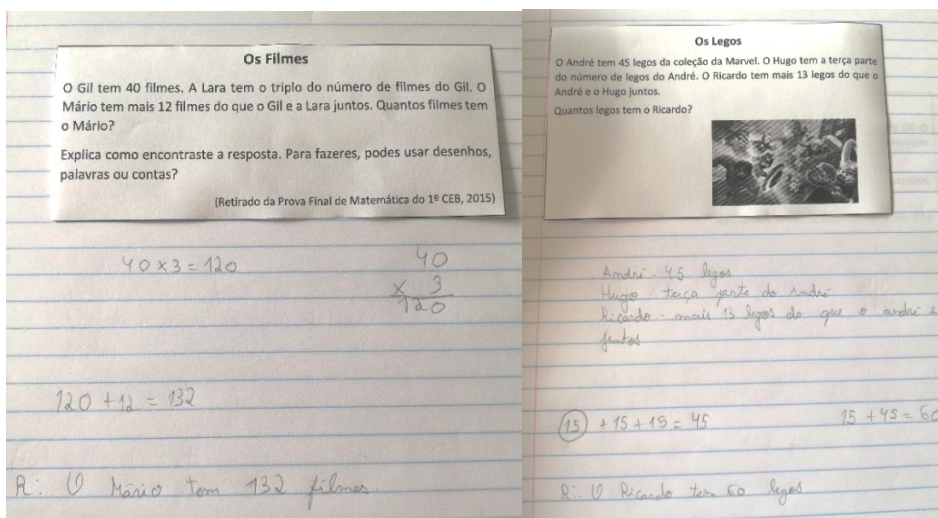 Os Filmes
O Gil tem 40 filmes. A Lara tem o triplo do número de filmes do Gil. O
Mário tem mais 12 filmes do que o Gil e a Lara juntos. Quantos filmes tem
o Mário?
Explica como encontraste a resposta. Para fazeres, podes usar desenhos,
palavras ou contas?
(Retirado da Prova Final de Matemática do 1º CEB, 2015)
40 x 3 = 120
40
x 3
120
120 + 12 = 132
R: O Mário tem 132 filmes.
Os Legos
O André tem 45 legos da coleção da Marvel. O Hugo tem a terça parte
do número de legos do André. O Ricardo tem mais 13 legos do que o
André e o Hugo juntos.
Quantos legos tem o Ricardo?
André - 45 legos
Hugo - terça parte do André
Ricardo - mais 13 legos do que o andré e
juntos
15 + 15 + 15 = 45
15 + 45 = 60
R: O Ricardo tem 60 legos